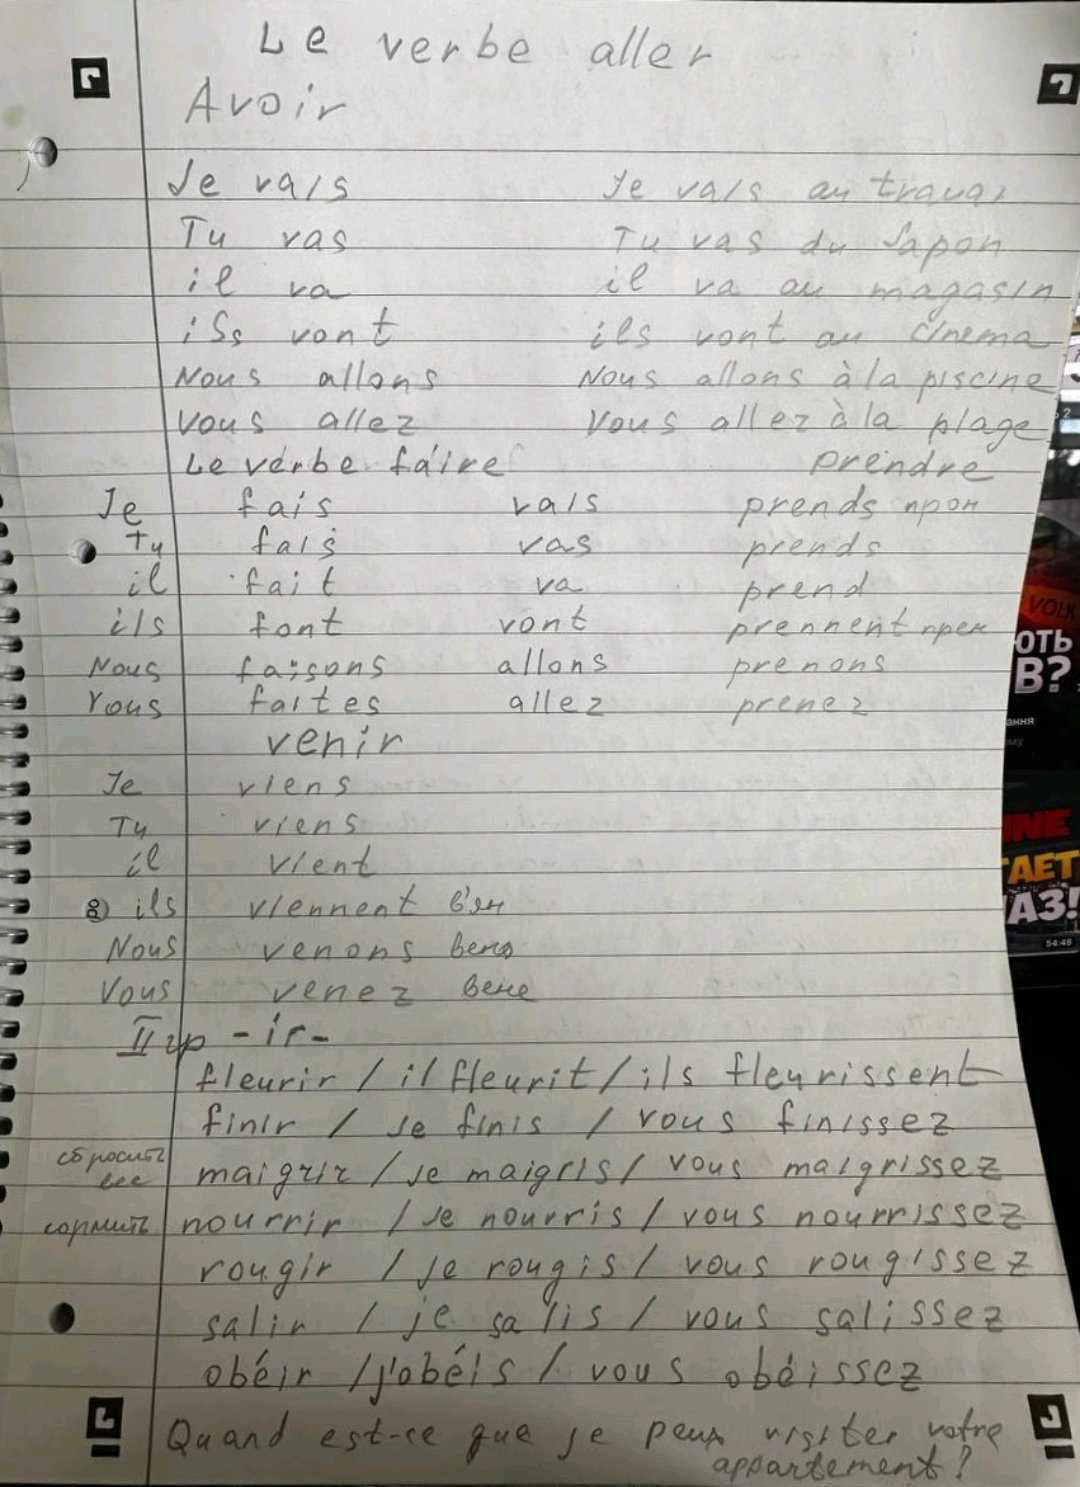 Le verbe aller
Avoir
Je vais Je vais au travai
Tu vas Tu vas du Japon
il va il va au magasin
ils vont ils vont au cinema
Nous allons Nous allons à la piscine
Vous allez Vous allez à la plage
Le vérbe fáire prendre
Je fais vais prends прон
Tu fais vas prends
il fait va prend
ils font vont prennent прен
Nous faisons allons prenons
Vous faites allez prenez
venir
Je viens
Tu viens
il vient
ils viennent в'ян
Nous venons вено
Vous venez вене
II гр -ir-
fleurir / il fleurit / ils fleurissent
finir / Je finis / vous finissez
сбросить вес maigrir / Je maigris / vous maigrissez
кормить nourrir / Je nourris / vous nourrissez
rougir / je rougis / vous rougissez
salir / je salis / vous salissez
obéir / j'obéis / vous obéissez
Quand est-ce que je peux visiter votre
appartement?
VOLK
ОТЬ
В?
ання
му
INE
ТАЕТ
АЗ!
54:48